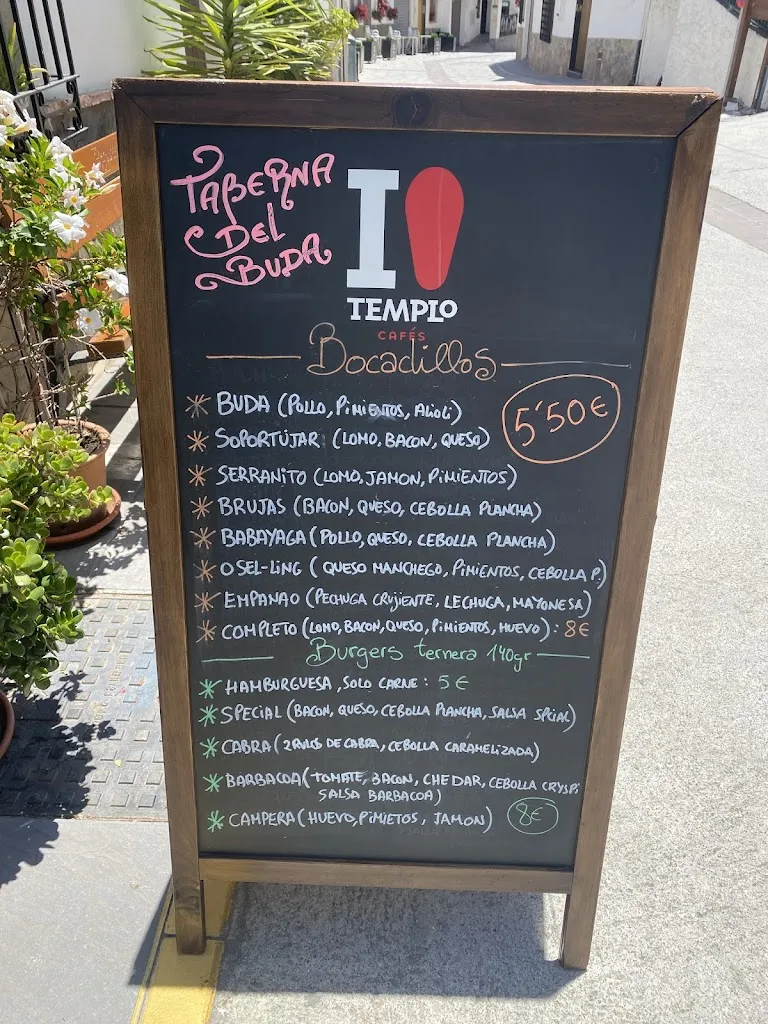 TABERNA
DEL
BUDA
I
TEMPLO
CAFÉS
Bocadillos
5'50€
BUDA (POLLO, PIMIENTOS, ALIOLI)
SOPORTÚJAR (LOMO, BACON, QUESO)
SERRANITO (LOMO, JAMON, PIMIENTOS)
BRUJAS (BACON, QUESO, CEBOLLA PLANCHA)
BABAYAGA (POLLO, QUESO, CEBOLLA PLANCHA)
OSEL-LING (QUESO MANCHEGO, PIMIENTOS, CEBOLLA P.)
EMPANAO (PECHUGA CRUJIENTE, LECHUGA, MAYONESA)
COMPLETO (LOMO, BACON, QUESO, PIMIENTOS, HUEVO): 8€
Burgers ternera 140gr
HAMBURGUESA, SOLO CARNE: 5€
SPECIAL (BACON, QUESO, CEBOLLA PLANCHA, SALSA SPCIAL)
CABRA (2 RULOS DE CABRA, CEBOLLA CARAMELIZADA)
BARBACOA (TOMATE, BACON, CHEDAR, CEBOLLA CRYSPI
SALSA BARBACOA)
CAMPERA (HUEVO, PIMIETOS, JAMON) 8€